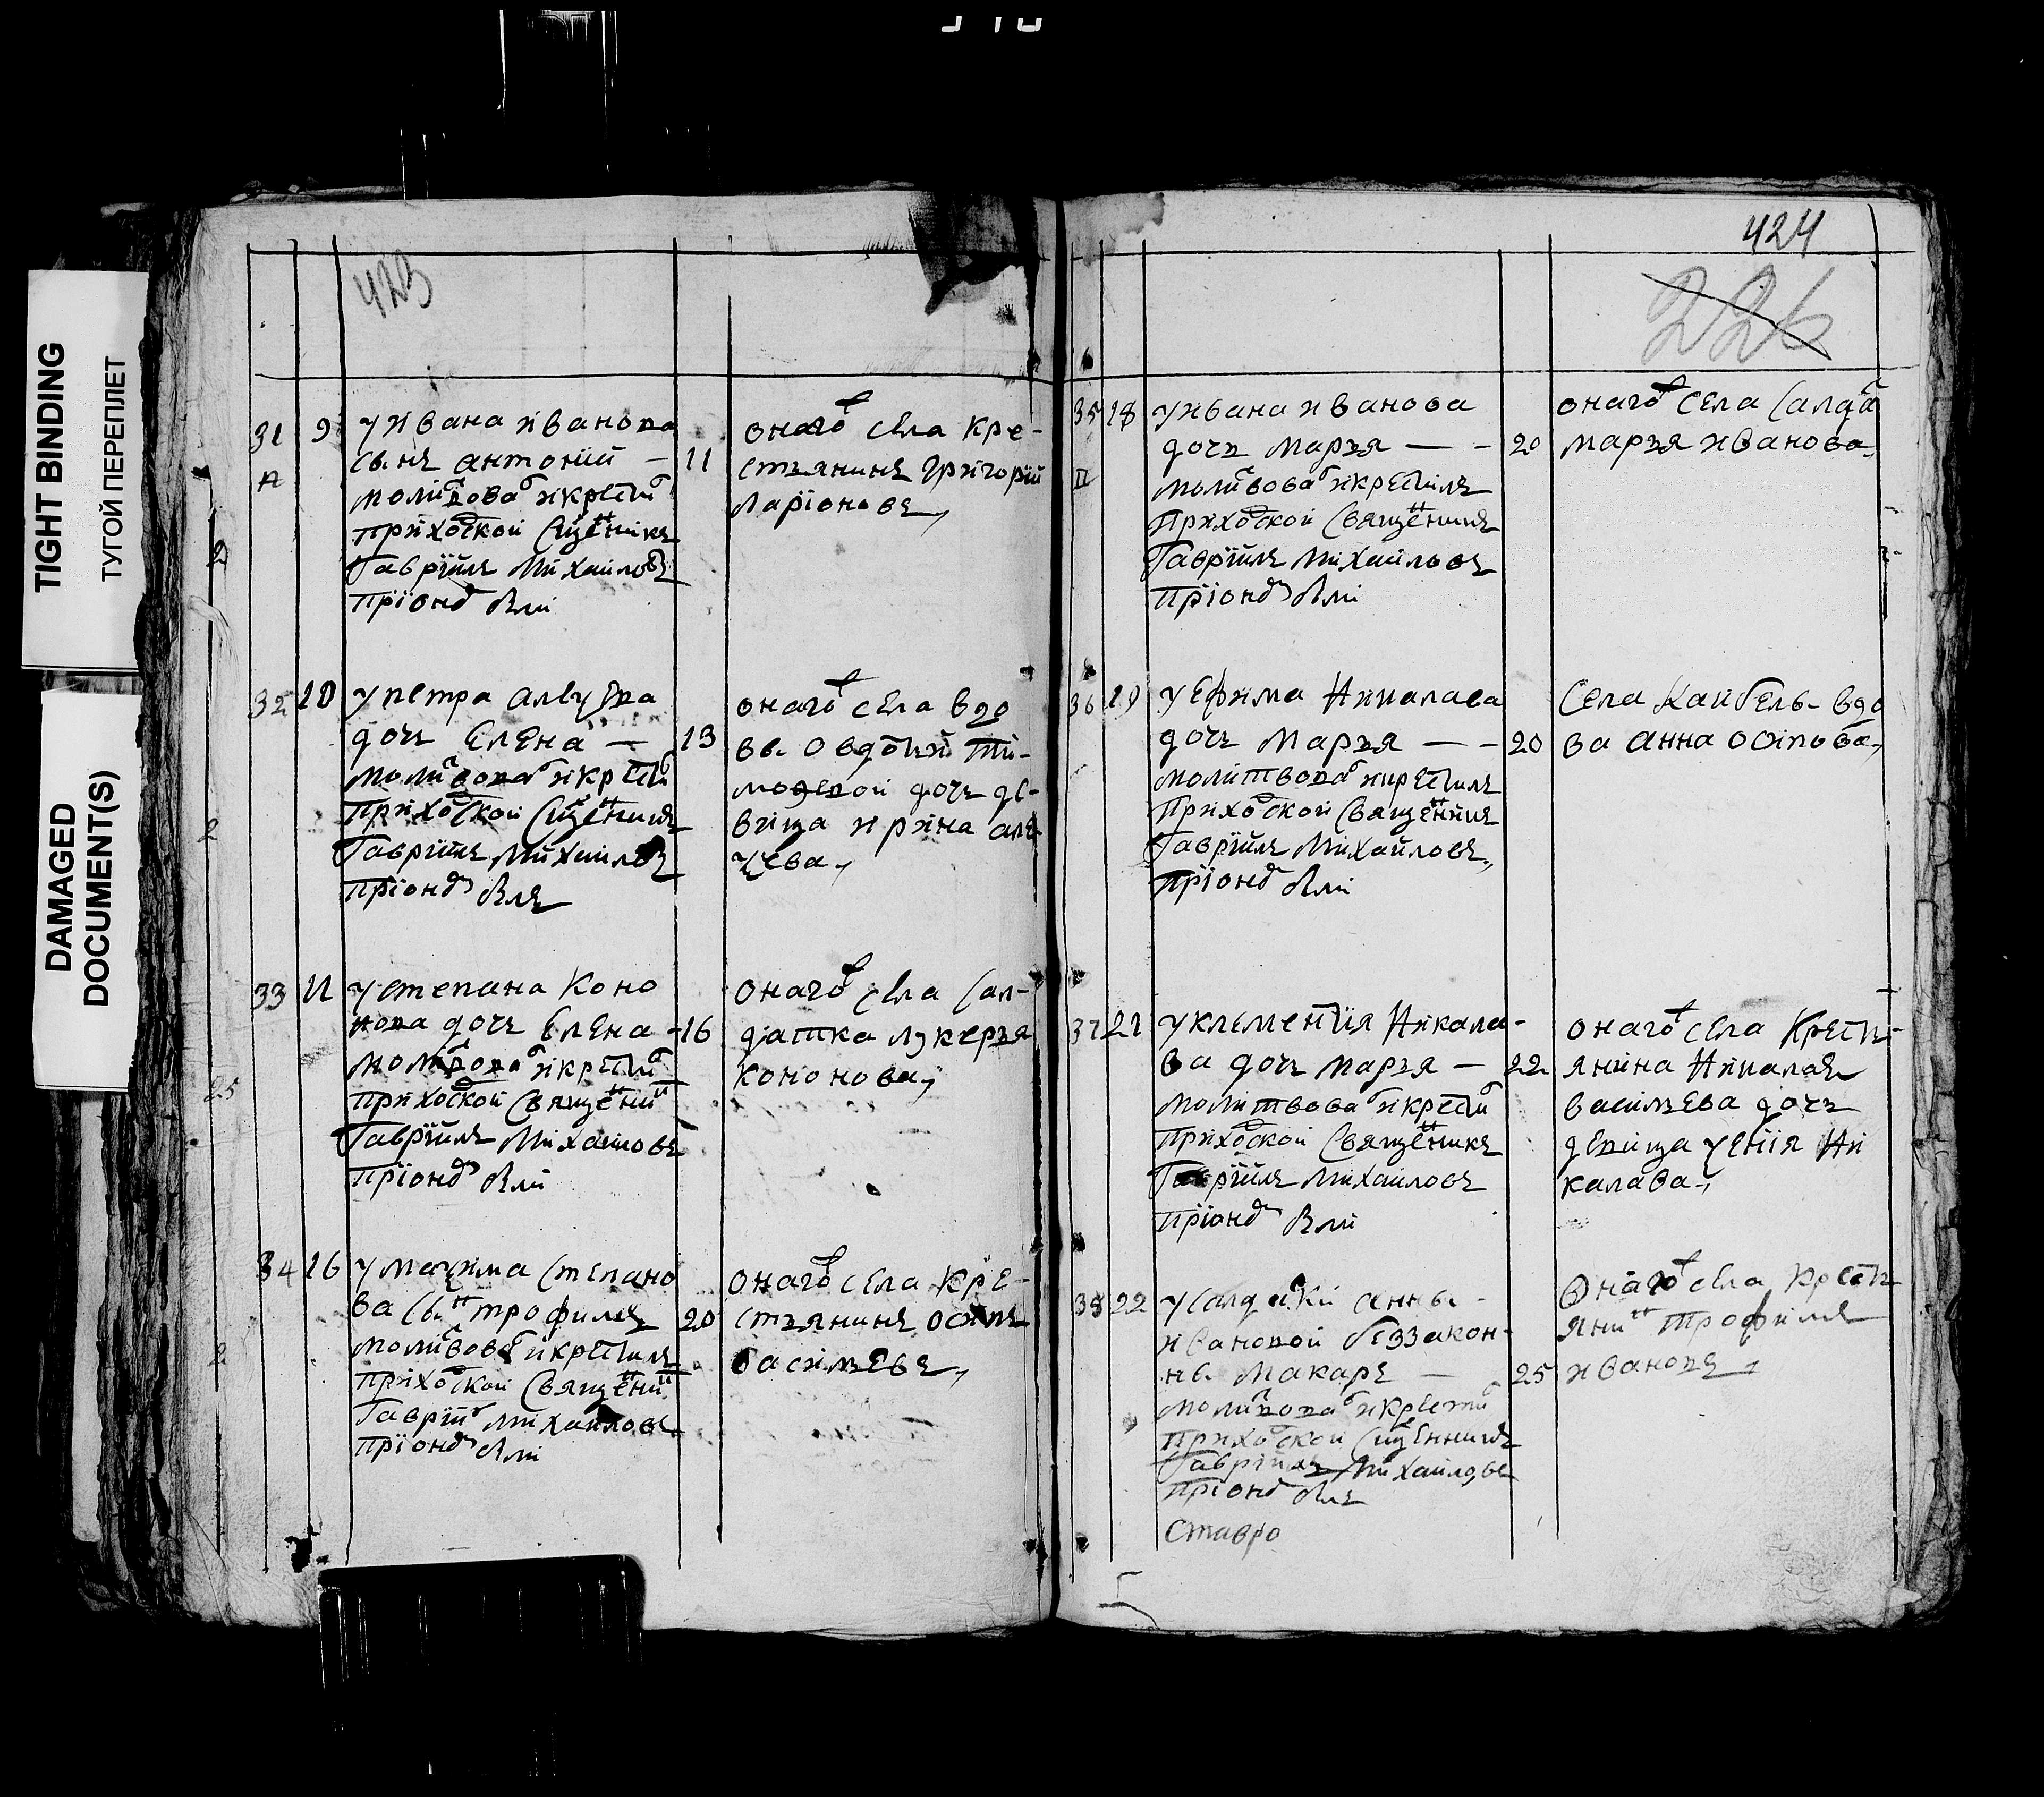 TIGHT BINDING
ТУГОЙ ПЕРЕПЛЕТ
DAMAGED
DOCUMENT(S)
423
31 9 у ивана иванова
сынъ антоний —
молитвова и крести
приходской сщенникъ
Гавріилъ Михаиловъ
пріонд
11
онаго села кре-
стьянинъ григорий
Ларіоновъ,
32 10 у петра
дочь Елена —
молитвова и крести
приходской сщенникъ
Гавріилъ Михаиловъ
пріонд
13
онаго села вдо
вы овдотьи ти-
мофевой дочь де-
вица ирина
33 11 у степана Коно
нова дочь Елена -
молитвова и крести
приходской священни
Гавріилъ Михаиловъ
пріонд
16
онаго села сал-
датка лукерья
кононова,
34 16 у максима степано
ва сын трофимъ
молитвова и крестилъ
приходской священни
Гавріи михаиловъ
пріонд
20
онаго села кре-
стьянинъ осипъ
васильевъ,
424
226
35 18 у ивана иванова
дочь марья — -
молитвова и крестилъ
приходской священникъ
Гавріилъ Михаиловъ
пріонд
20
онаго села салда
марья иванова,
36 19 у Ефима Никалава
дочь марья — -
молитвова и крестилъ
приходской священникъ
Гавріилъ Михаиловъ,
пріонд
20
села Каибелы вдо
ва анна осипова,
37 21 у клементия Никала-
ва дочь марья —
молитвова и крести
приходской священникъ
Гавріилъ Михаиловъ
пріонд
22
онаго села крестъ-
янина Никалая
васильева дочь
девица Ни
калава,
38 22 у салдаки анны -
ивановой беззакон-
ны макаръ —
молитвова и крести
приходской сщенникъ
Гавріилъ Михаиловъ
пріонд
Ставро
25
онаго села кресть
янин трофимъ
ивановъ,